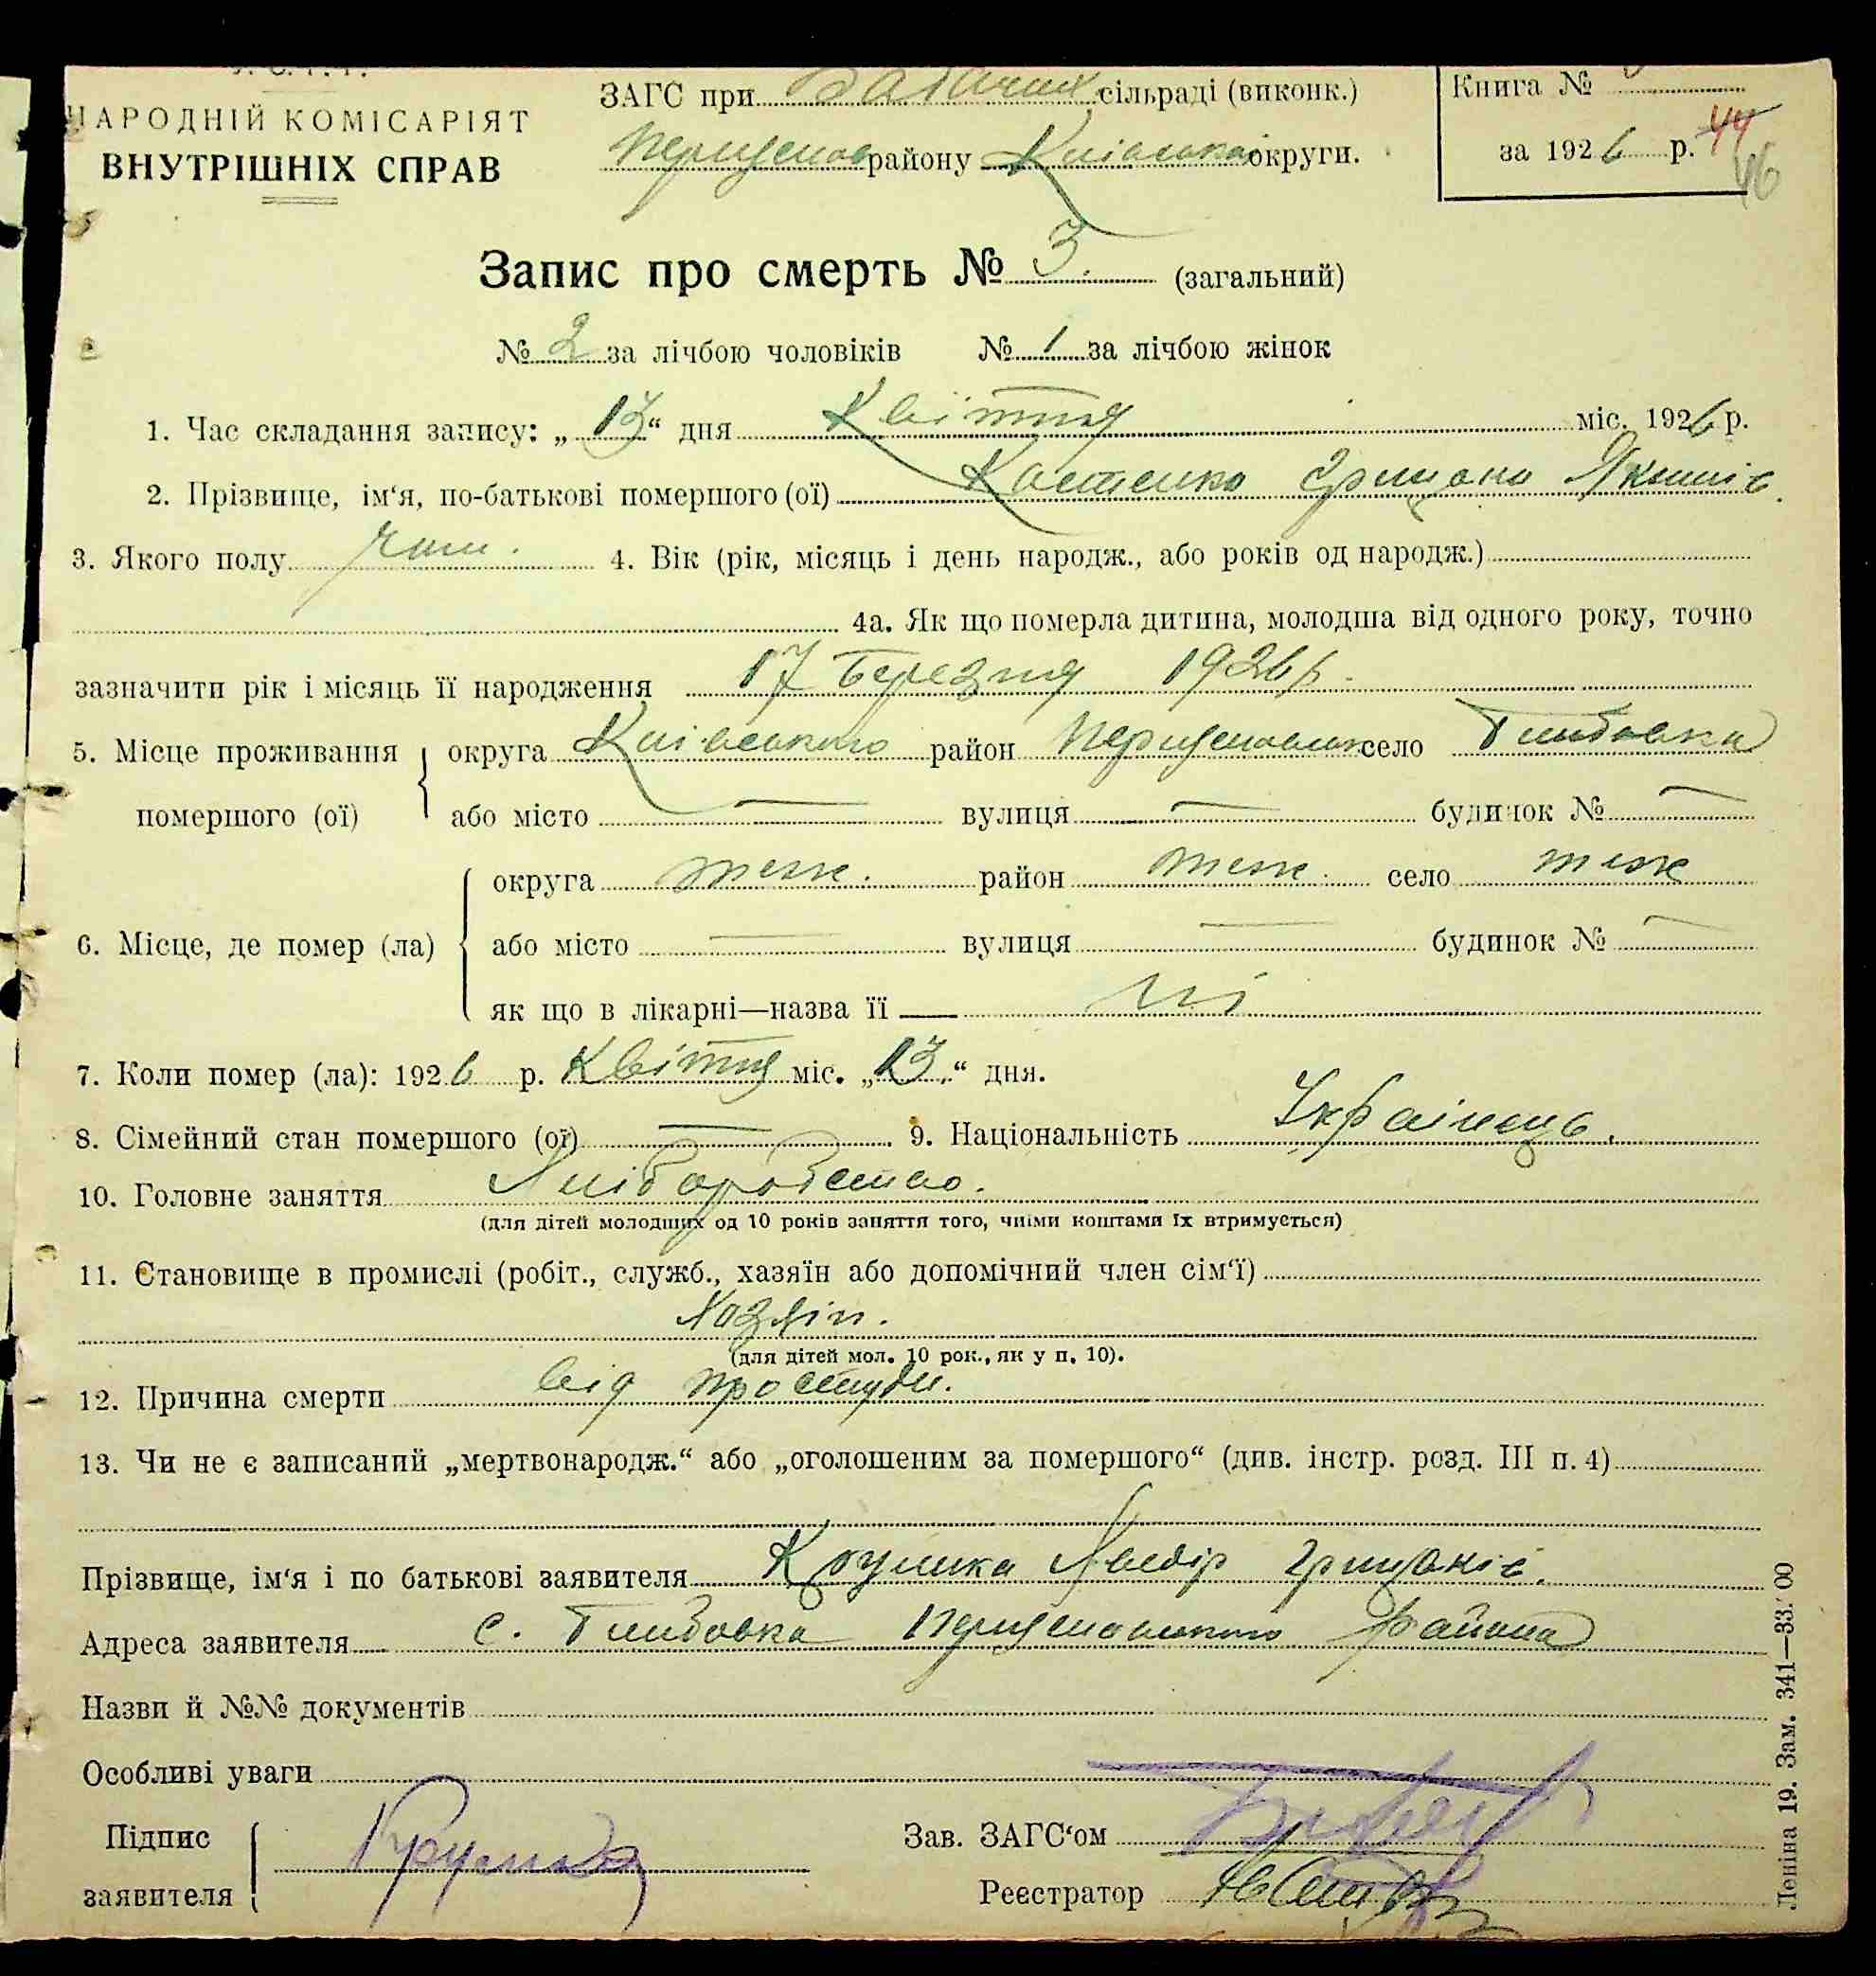 НАРОДНІЙ КОМІСАРІЯТ
ВНУТРІШНІХ СПРАВ
ЗАГС при сільраді (виконк.)
району округи.
Книга №
за 1926 р. 44
46
Запис про смерть № 3. (загальний)
№ 2 за лічбою чоловіків № 1 за лічбою жінок
1. Час складання запису: „13“ дня Квітня міс. 1926 р.
2. Прізвище, ім‘я, по-батькові помершого (ої) Костенко
3. Якого полу чол. 4. Вік (рік, місяць і день народж., або років од народж.)
4а. Як що померла дитина, молодша від одного року, точно
зазначити рік і місяць її народження 17 Березня 1926 р.
5. Місце проживання помершого (ої) округа Київського район село
або місто — вулиця — будинок № —
6. Місце, де помер (ла) округа теж. район теж. село теж
або місто — вулиця — будинок № —
як що в лікарні—назва її — ні
7. Коли помер (ла): 1926 р. Квітня міс. „13.“ дня.
8. Сімейний стан помершого (ої) — 9. Національність Українець.
10. Головне заняття Хліборобство.
(для дітей молодших од 10 років заняття того, чиїми коштами їх втримується)
11. Становище в промислі (робіт., служб., хазяїн або допомічний член сім‘ї)
Хазяїн.
(для дітей мол. 10 рок., як у п. 10).
12. Причина смерти від простуди.
13. Чи не є записаний „мертвонародж.“ або „оголошеним за помершого“ (див. інстр. розд. III п. 4)
Прізвище, ім‘я і по батькові заявителя
Адреса заявителя с. района
Назви й №№ документів
Особливі уваги
Підпис заявителя
Зав. ЗАГС‘ом
Реєстратор
Леніна 19. Зам. 341—33.